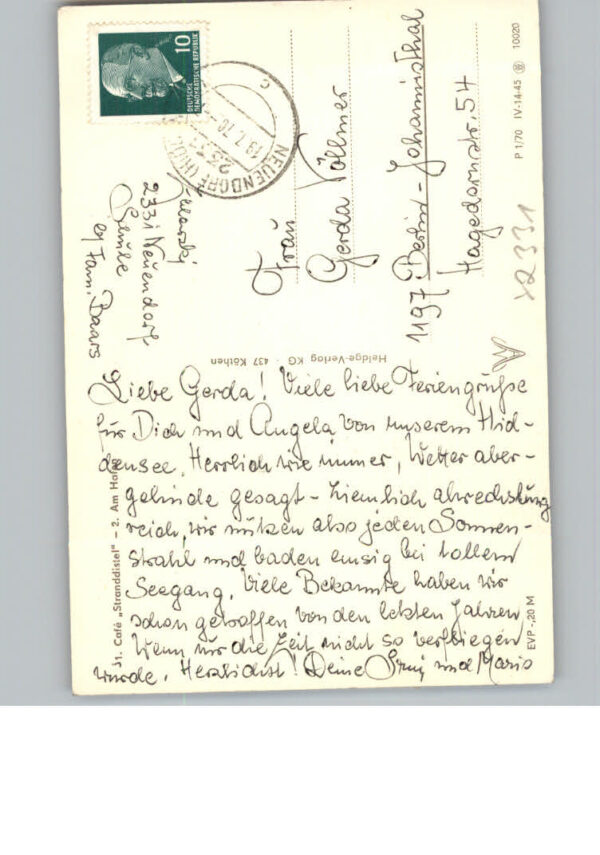 Liebe Gerda! Viele liebe Feriengrüße
für Dich und Angela von unserem Hid-
densee. Herrlich wie immer, Wetter aber -
gelinde gesagt - ziemlich abwechslung
reich, wir nützen also jeden Sonnen-
strahl und baden emsig bei tollem
Seegang. Viele Bekannte haben wir
schon getroffen von den letzten Jahren
Wenn nur die Zeit nicht so verfliegen
würde. Herzlichst! Deine und Mario
2331 Neuendorf
Schule
by Fam. Baars
Frau
Gerda Völlmer
1197 Berlin-Johannisthal
Hagedornstr. 54
x2331
10
DEUTSCHE
DEMOKRATISCHE REPUBLIK
NEUENDORF
2331
c
J1. Café „Stranddistel" - 2. Am
EVP -,20 M
Heldge-Verlag KG · 437 Köthen
P 1/70 IV-14-45 10020